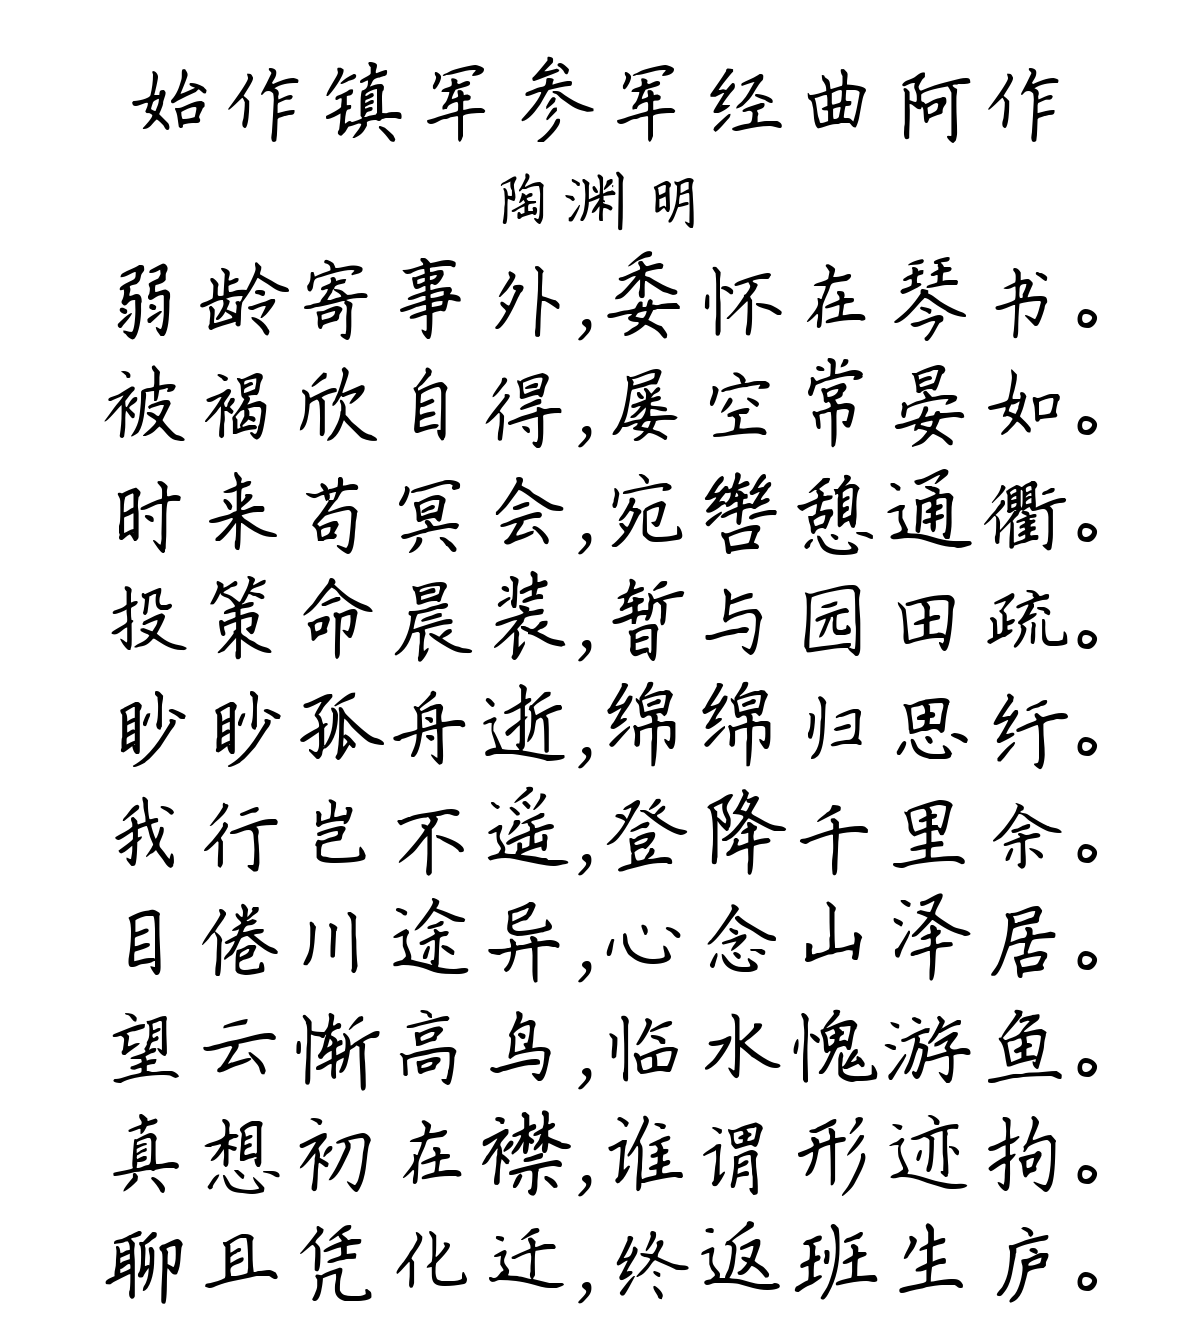 始作镇军参军经曲阿作
陶渊明
弱龄寄事外,委怀在琴书。
被褐欣自得,屡空常晏如。
时来苟冥会,宛辔憩通衢。
投策命晨装,暂与园田疏。
眇眇孤舟逝,绵绵归思纡。
我行岂不遥,登降千里余。
目倦川途异,心念山泽居。
望云惭高鸟,临水愧游鱼。
真想初在襟,谁谓形迹拘。
聊且凭化迁,终返班生庐。